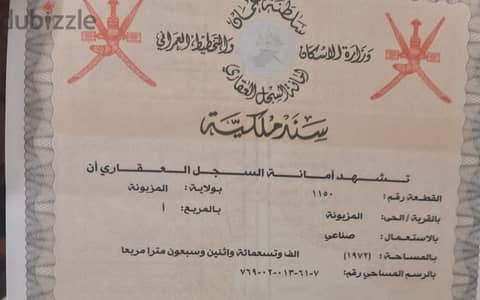 dubizzle
سلطنة عمان
وزارة الاسكان والتخطيط العمراني
امانة السجل العقاري
سند ملكية
تشهد أمانة السجل العقاري أن
القطعة رقم: ١١٥٠ بولاية: المزيونة
بالقرية / الحى: المزيونة بالمربع: أ
بالاستعمال: صناعي
بالمساحة: (١٩٧٢) الف وتسعمائة واثنين وسبعون مترا مربعا
بالرسم المساحي رقم: ٧-٦١-٠١٣-٠٢-٧٦٩